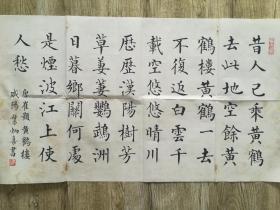 昔人已乘黄鶴
去此地空餘黄
鶴樓黄鶴一去
不復返白雲千
載空悠悠晴川
歷歷漢陽樹芳
草萋萋鸚鵡洲
日暮鄉關何處
是煙波江上使
人愁
唐崔顥黄鶴樓
咸陽 喜書